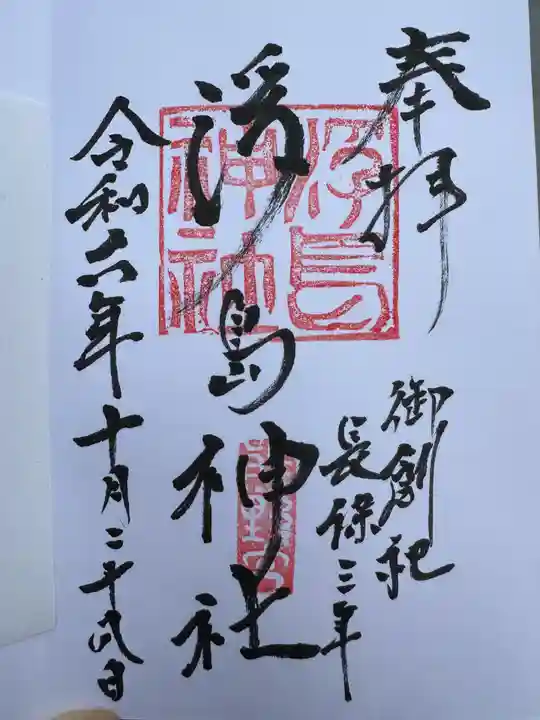 奉拝
御創祀
長保三年
浮島神社
浮島神社
令和六年十月二十八日